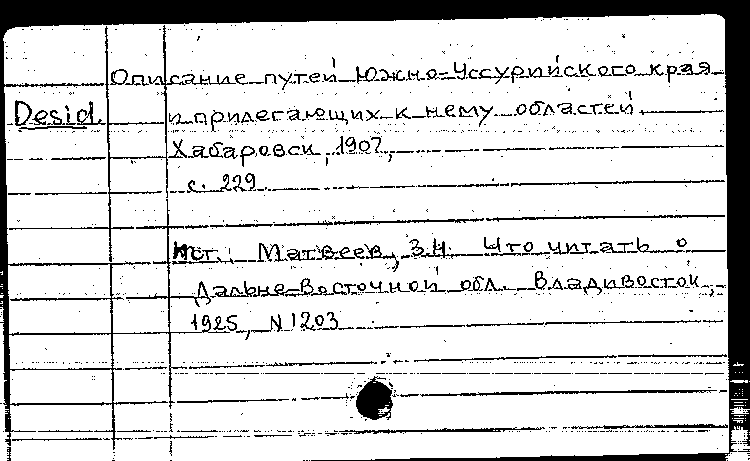 Описание путей Южно-Уссурийского края
Desid. и прилегающих к нему областей.
Хабаровск, 1907,
с. 229
Ист.: Матвеев, З.Н. Что читать о
Дальне-Восточной обл. Владивосток,
1925, N 1203